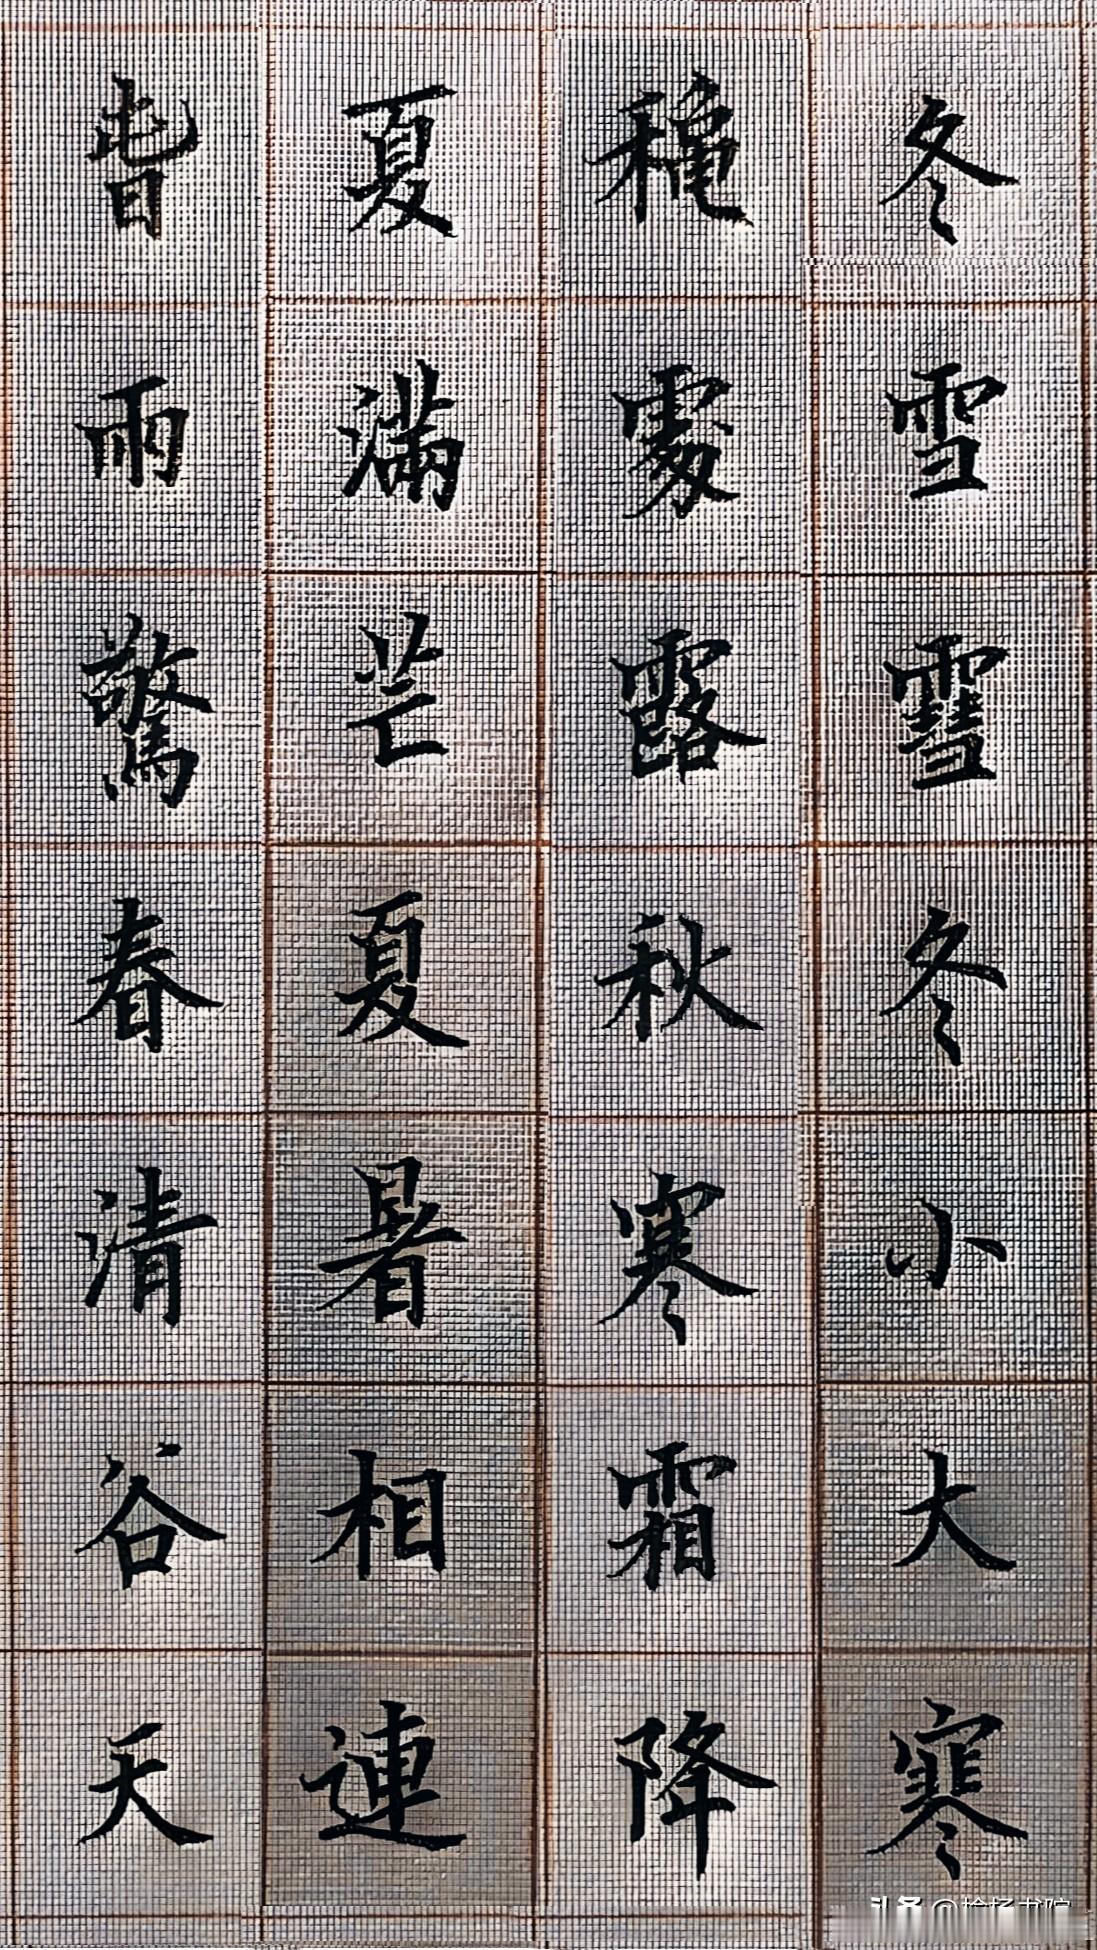 旾雨驚春清谷天
夏滿芒夏暑相連
穐處露秋寒霜降
冬雪䨮冬小大寒
头条